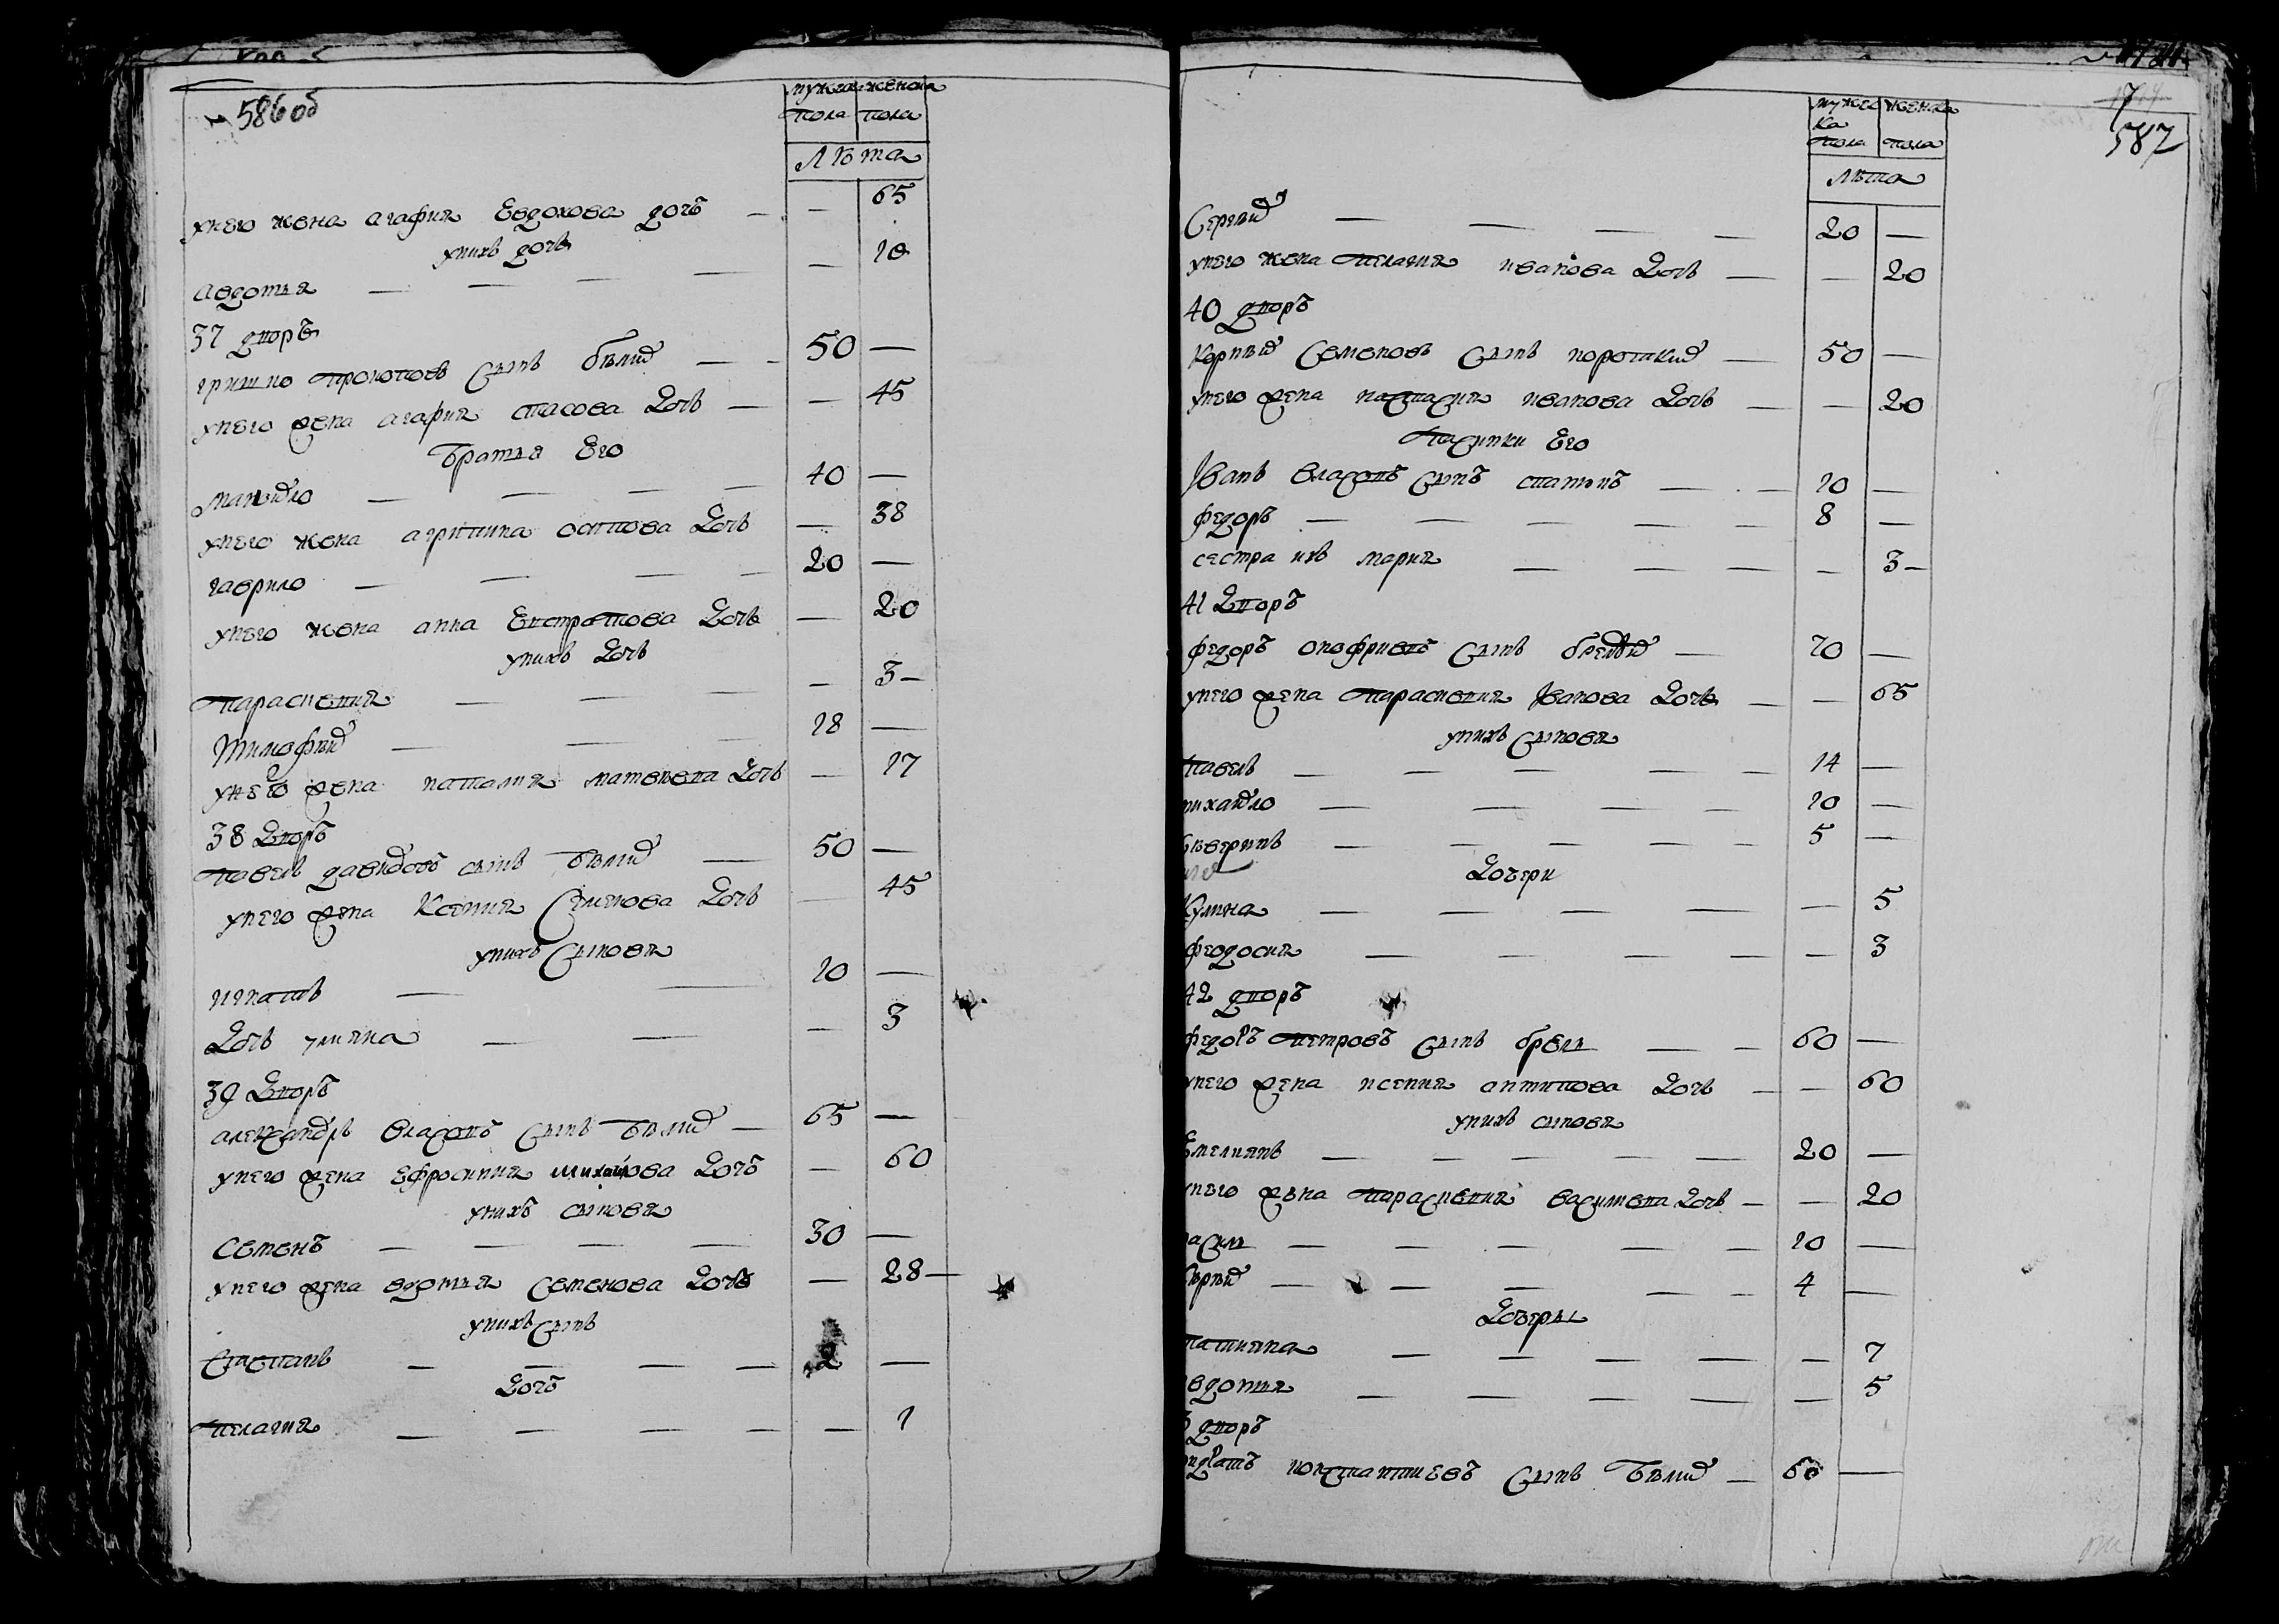 586об
мужска женска
пола пола
лѣта
унего жена агафия Евдохова дочь — — 65
унихъ дочь
авдотья — — — — — 10
37 дворъ
гришко прокоповъ сынъ бѣлий — 50 —
унего жена агафия стасова дочь — — 45
братья Его
манойло — — — — 40 —
унего жена агрипина осипова дочь — 38
гаврило — — — — 20 —
унего жена анна Евстратова дочь — 20
унихъ дочь
парасковия — — — — 3 —
тимофѣй — — — 18 —
унего жена наталия матвѣева дочь — 17
38 дворъ
павелъ давидовъ сынъ бѣлий — 50 —
унего жена Ксения Семенова дочь — 45
унихъ сыновя
игнатъ — — 10 —
дочь улияна — — — 3
39 дворъ
александръ власовъ сынъ бѣлий — 65 —
унего жена Ефросиния михайлова дочь — 60
унихъ сыновя
семенъ — — — — 30 —
унего жена вдотья семенова дочь — 28 —
унихъ сынъ
степанъ — — — — 2 —
дочь
пелагия — — — — — 1
7
587
мужес женска
ка
пола пола
лѣта
Сергѣй — — — — 20 —
унего жена пелагия иванова дочь — — 20
40 дворъ
Корнѣй Семеновъ сынъ короткий — 50 —
унего жена настасия иванова дочь — — 20
пасинки Его
Іванъ власовъ сынъ — — 10 —
федоръ — — — — — 8 —
сестра ихъ мария — — — — 3 —
41 дворъ
федоръ онофриевъ сынъ — 70 —
унего жена парасковия Іванова дочь — — 65
унихъ сыновя
павелъ — — — — — 14 —
михайло — — — — 10 —
— — — — — 5 —
дочери
Кулина — — — — — 5
феодосия — — — — — 3
42 дворъ
федоръ петровъ сынъ — — 60 —
унего жена ксения антипова дочь — — 60
унихъ сыновя
Емелиянъ — — — — — 20 —
унего жена парасковия василиева дочь — — 20
василь — — — — — 10 —
— — — — — 4 —
дочеры
татияна — — — — — 7
вдотия — — — — — 5
3 дворъ
кондратъ константиевъ сынъ бѣлий — 60 —